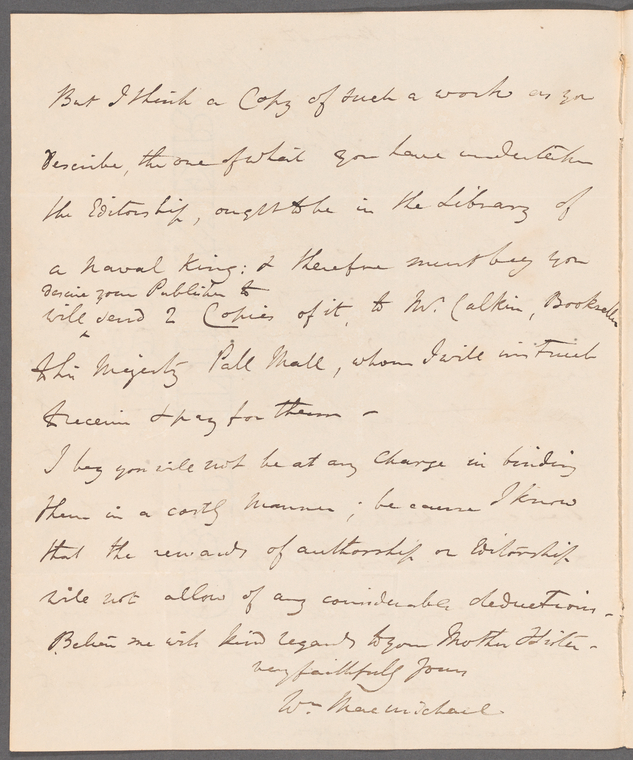 But I think a Copy of such a work as you
describe, the one of what you have undertaken
the Editorship, ought to be in the Library of
a naval King: & therefore must beg you
desire your Publisher to
will send 2 Copies of it, to Mr. Calkin, Bookseller
to his Majesty Pall Mall, whom I will instruct
to receive & pay for them -
I beg you will not be at any charge in binding
them in a costly manner; because I know
that the rewards of authorship or Editorship
will not allow of any considerable deductions -
Believe me with kind regards to your Mother & Sister -
very faithfully yours
Wm Macmichael